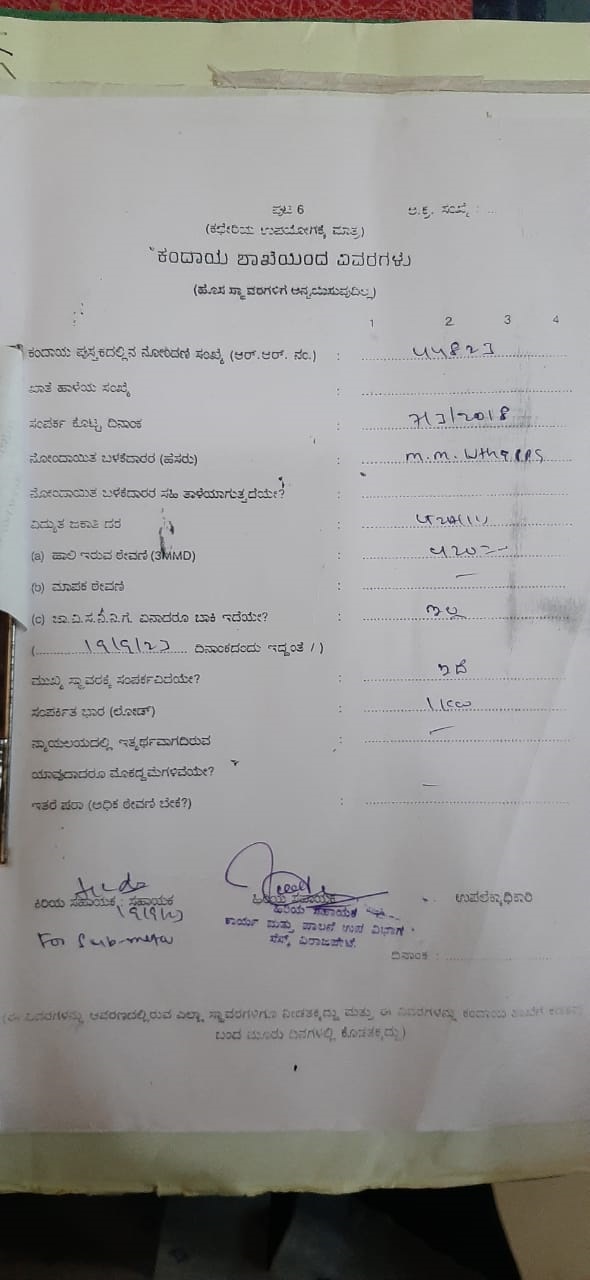 ಪುಟ 6 ಅ.ಕ್ರ. ಸಂಖ್ಯೆ : ...
(ಕಛೇರಿಯ ಉಪಯೋಗಕ್ಕೆ ಮಾತ್ರ)
ಕಂದಾಯ ಶಾಖೆಯಿಂದ ವಿವರಗಳು
(ಹೊಸ ಸ್ಥಾವರಗಳಿಗೆ ಅನ್ವಯಿಸುವುದಿಲ್ಲ)
1 2 3 4
ಕಂದಾಯ ಪುಸ್ತಕದಲ್ಲಿನ ನೋಂದಣಿ ಸಂಖ್ಯೆ (ಆರ್.ಆರ್. ನಂ.) : 44823
ಖಾತೆ ಹಾಳೆಯ ಸಂಖ್ಯೆ :
ಸಂಪರ್ಕ ಕೊಟ್ಟ ದಿನಾಂಕ : 7/3/2018
ನೋಂದಾಯಿತ ಬಳಕೆದಾರರ (ಹೆಸರು) : M.M.
ನೋಂದಾಯಿತ ಬಳಕೆದಾರರ ಸಹಿ ತಾಳೆಯಾಗುತ್ತದೆಯೇ? :
ವಿದ್ಯುತ ಜಕಾತಿ ದರ :
(a) ಹಾಲಿ ಇರುವ ಠೇವಣಿ (3MMD) : 4202=-
(b) ಮಾಪಕ ಠೇವಣಿ : —
(c) ಚಾ.ವಿ.ಸ.ನಿ.ನಿ.ಗೆ. ಏನಾದರೂ ಬಾಕಿ ಇದೆಯೇ? : ಇಲ್ಲ
(19/9/23 ದಿನಾಂಕದಂದು ಇದ್ದಂತೆ / )
ಮುಖ್ಯ ಸ್ಥಾವರಕ್ಕೆ ಸಂಪರ್ಕವಿದೆಯೇ? : ಇದೆ
ಸಂಪರ್ಕಿತ ಭಾರ (ಲೋಡ್) : 1kw
ನ್ಯಾಯಲಯದಲ್ಲಿ ಇತ್ಯರ್ಥವಾಗದಿರುವ : —
ಯಾವುದಾದರೂ ಮೊಕದ್ದಮೆಗಳಿವೆಯೇ?
ಇತರೆ ಷರಾ (ಅಧಿಕ ಠೇವಣಿ ಬೇಕೆ?) : —
ಕಿರಿಯ ಸಹಾಯಕ : ಸಹಾಯಕ ಹಿರಿಯ ಸಹಾಯಕ ಉಪಲೆಕ್ಕಾಧಿಕಾರಿ
19/9/23 ಹಿರಿಯ ಸಹಾಯಕ
For Sub-meter ಕಾರ್ಯ ಮತ್ತು ಪಾಲನೆ ಉಪ ವಿಭಾಗ
ಸೆಸ್ಕ್, ವಿರಾಜಪೇಟೆ.
ದಿನಾಂಕ :
(ಈ ವಿವರಗಳನ್ನು ಆವರಣದಲ್ಲಿರುವ ಎಲ್ಲಾ ಸ್ಥಾವರಗಳಿಗೂ ನೀಡತಕ್ಕದ್ದು ಮತ್ತು ಈ ವಿವರಗಳನ್ನು ಕಂದಾಯ ಶಾಖೆಗೆ
ಬಂದ ಮೂರು ದಿನಗಳಲ್ಲಿ ಕೊಡತಕ್ಕದ್ದು)